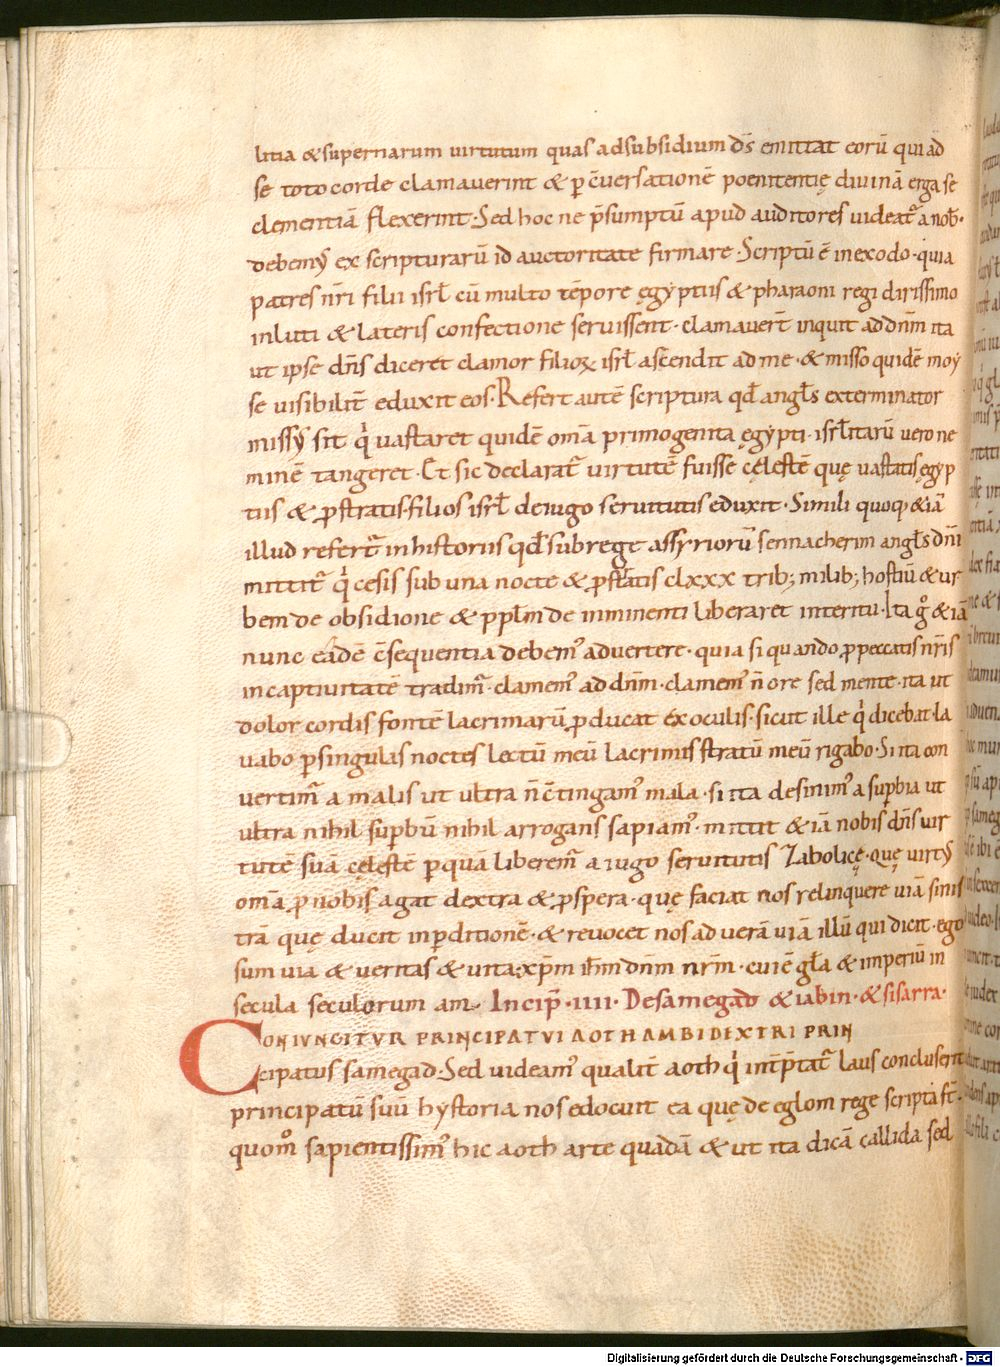 litia & supernarum uirtutum quas adsubsidium dn̄s emittat eorū qui ad
se toto corde clamauerint & p c̄uersationē poenitentię diuinā erga se
clementiā flexerint· Sed hoc ne p̄sumptū apud auditores uideat̾ a nob̄·
debem᾽ ex scripturarū id auctoritate firmare· Scriptū ē inexodo· quia
patres nr̄i filii isrl̄ cū multo tēpore ęgyptiis & pharaoni regi dirissimo
inluti & lateris confectione seruissent· clamauer̄t inquit ad dn̄m ita
ut ipse dn̄s diceret clamor filioꝝ isrl̄ ascendit ad me· & misso quidē moy
se uisibilit̄ eduxit eos· Refert autē scriptura qd̄ angl̄s exterminator
miss᾽ sit q̇ uastaret quidē om̄a primogenita ęgypti· isrl̄itarū uero ne
minē tangeret· Et sic declarat̾ uirtutē fuisse cęlestē quę uastatis ęgyp
tiis & ꝓstratis· filios isrl̄ deiugo seruitutis eduxit· Simili quoq; & iā
illud refert̾ in historiis qd̄ sub rege assyriorū sennacherim angl̄s dn̄i
mittit̾ q̇ cesis sub una nocte & ꝓstratis clxxx trib; milib; hostiū & ur
bem de obsidione & ppl̄m de imminenti liberaret interitu· Ita g̊ & iā
nunc eadē c̄sequentia debem᾽ aduertere· quia si quando ꝓ peccatis nr̄is
incaptiuitatē tradim̾· clamem᾽ ad dn̄m· clamem᾽ n̄ ore sed mente· ita ut
dolor cordis fontē lacrimarū ꝓducat ex oculis· sicut ille q̇ dicebat· la
uabo p singulas noctes lectū meū lacrimis stratū meū rigabo· Si ita con
uertim̾ a malis ut ultra n̄ c̄tingam᾽ mala· si ita desinim᾽ a supbia ut
ultra nihil supbū nihil arrogans sapiam᾽· mittit & iā nobis dn̄s uir
tutē suā cęlestē p quā liberem̾ a iugo seruitutis zabolicę· quę uirt᾽
om̄a ꝓ nobis agat dextra & ꝓspera· quę faciat nos relinquere uiā sinis
trā quę ducit in pditionē· & reuocet nos ad uerā uiā illū qui dicit· ego
sum uia & ueritas & uita· xp̄m ih̄m dn̄m nr̄m· cui ē gl̄a & imperiū in
secula seculorum am̄· Incip̄·IIII· De samegad & iabin· & sisarra·
CONIUNGITUR PRINCIPATUI AOTH AMBIDEXTRI PRIN
cipatus samegad· Sed uideam᾽ qualit̄ aoth q̇ int̄p̄tat̾ laus concluserit
principatū suū hystoria nos edocuit ea quę de eglom rege scripta st̄·
quom̊ sapientissim᾽ hic aoth arte quadā & ut ita dicā callida sed
Digitalisierung gefördert durch die Deutsche Forschungsgemeinschaft - DFG